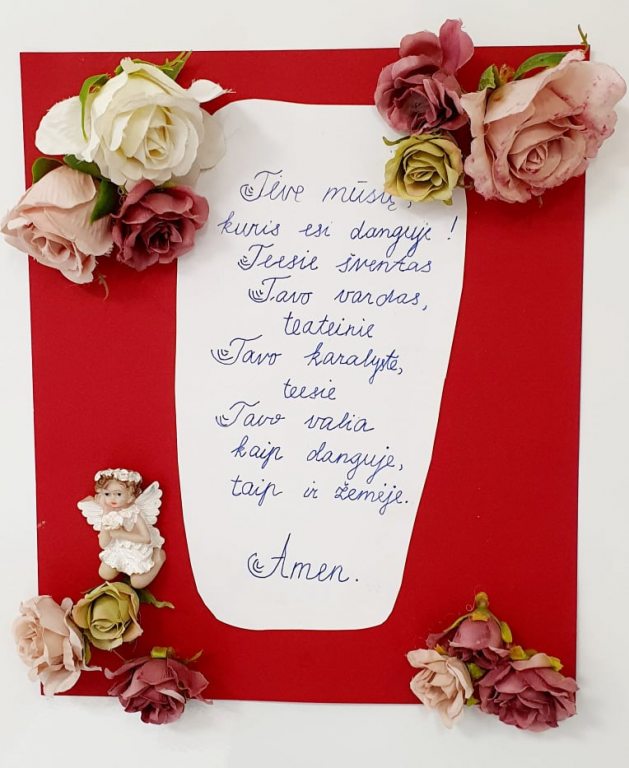 Tėve mūsų,
kuris esi danguje!
Teesie šventas
Tavo vardas,
teateinie
Tavo karalystė,
teesie
Tavo valia
kaip danguje,
taip ir žemėje.
Amen.